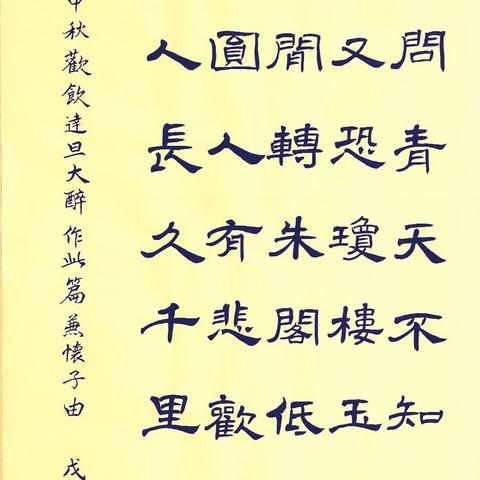 問青天不知
又恐瓊樓玉
閒轉朱閣低
圓人有悲歡
人長久千里
中秋歡飲達旦大醉作此篇兼懷子由 戊